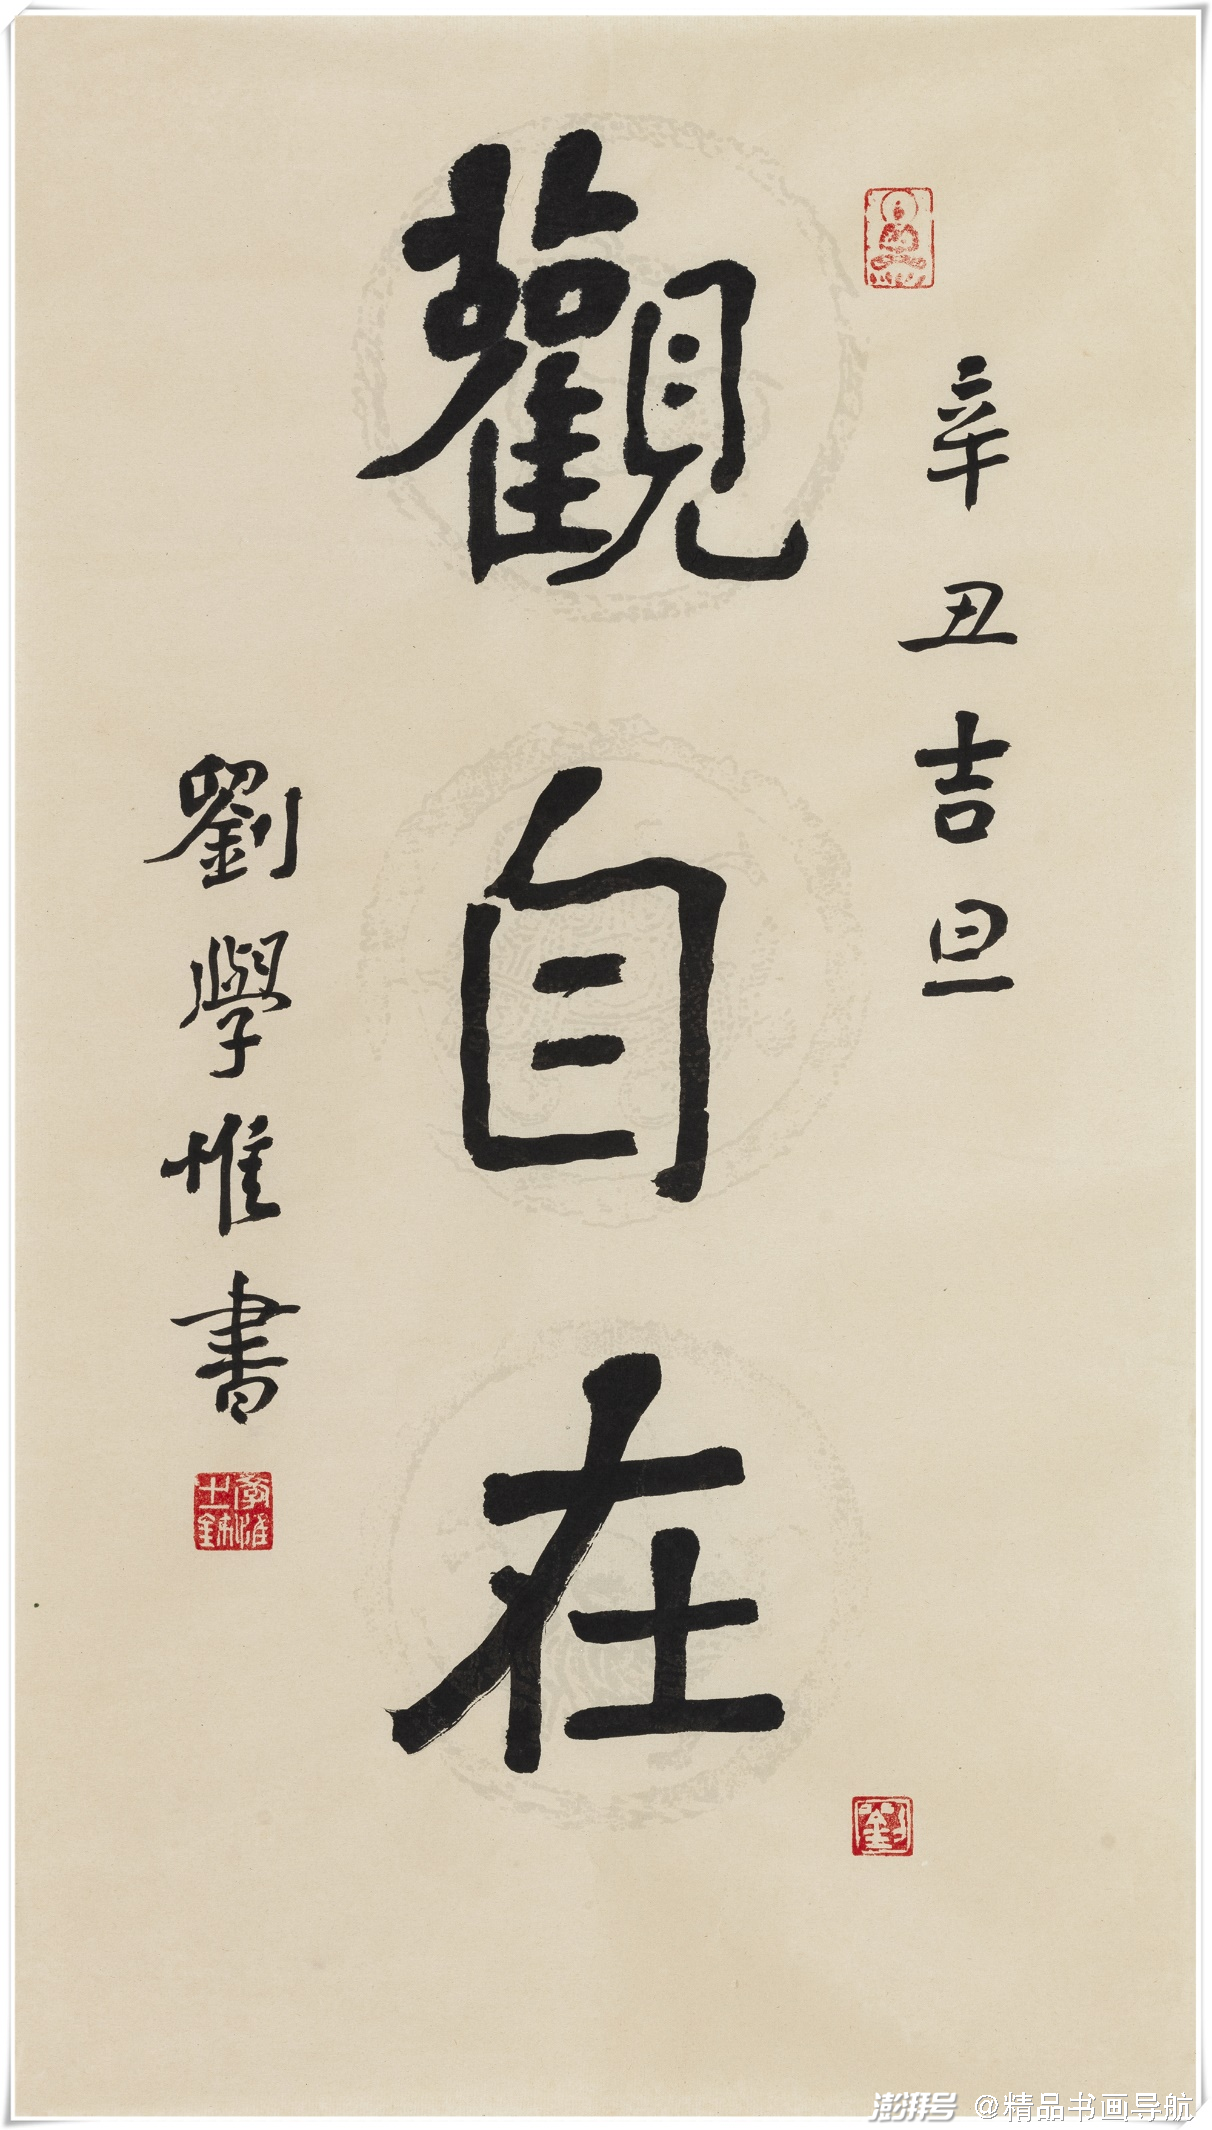 辛丑吉旦
觀自在
劉學惟書
劉
澎湃号 @精品书画导航